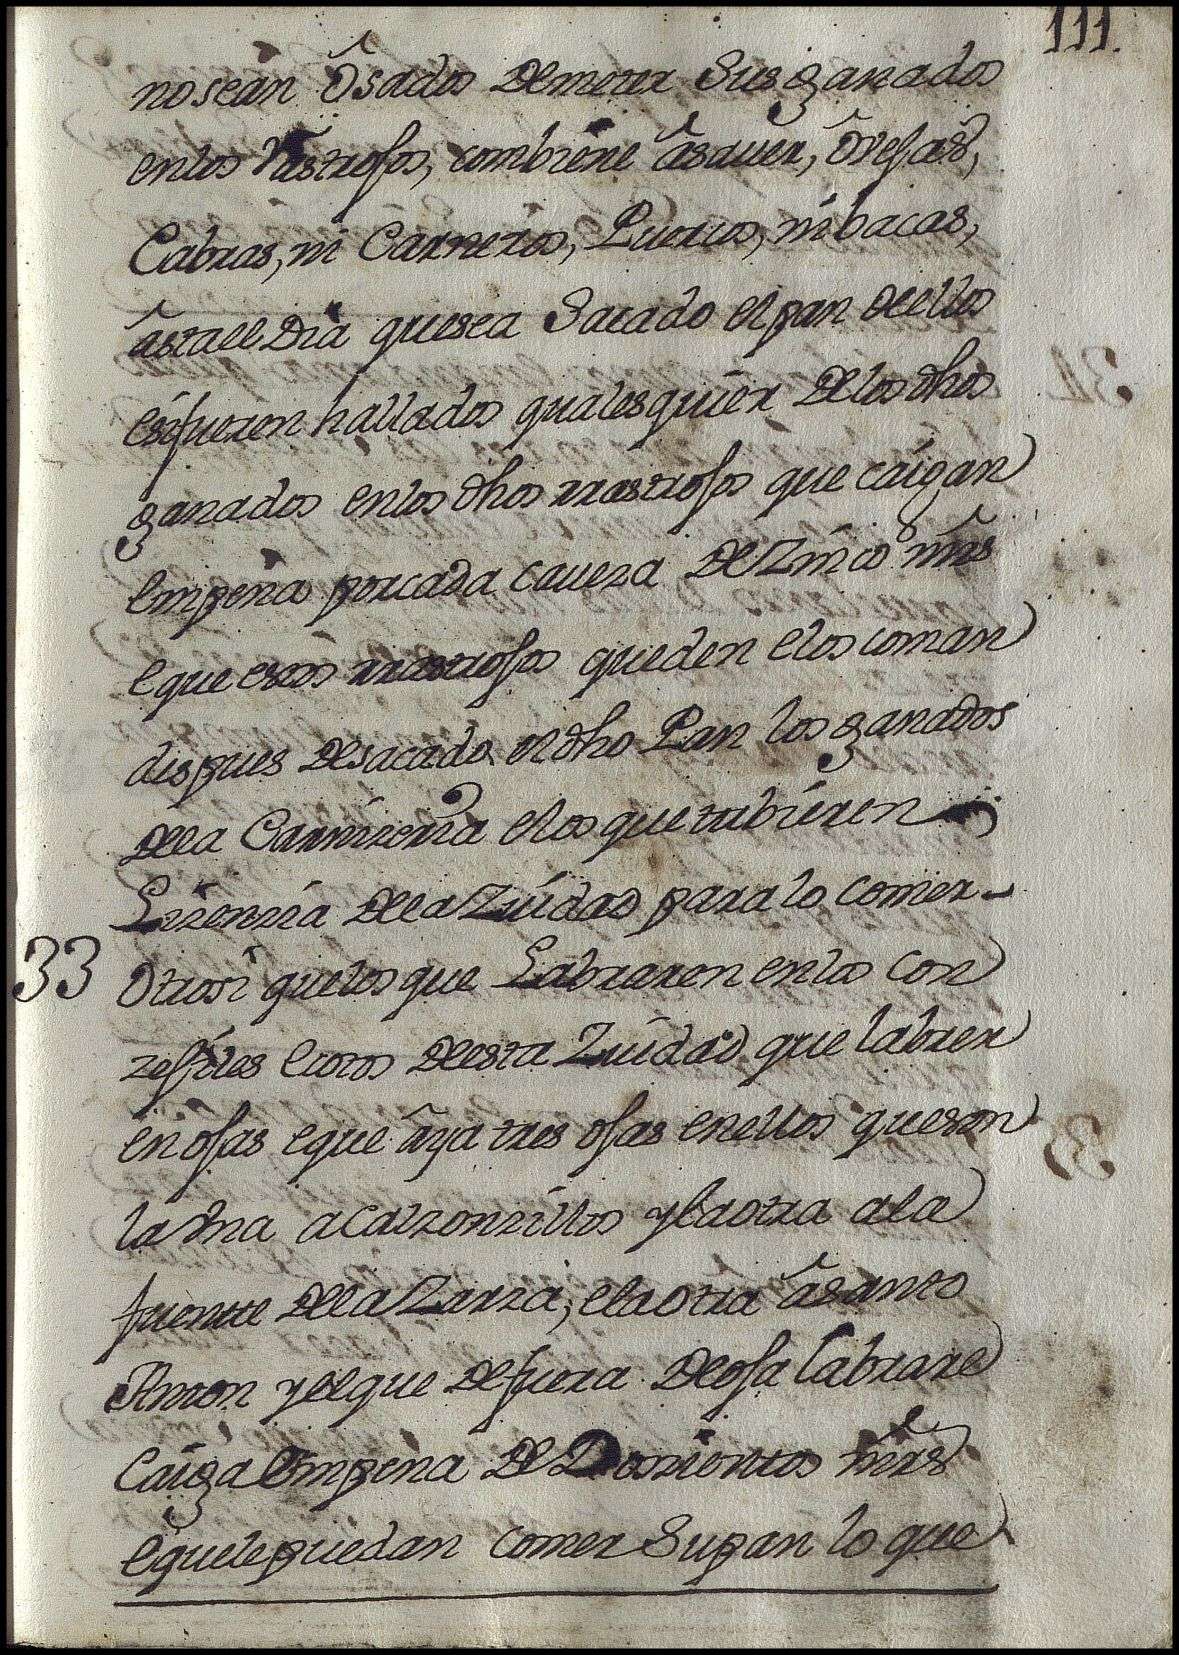 111.
no sean ôsados de meter sus ganados
en los rastrojos, combiene âsaver, ôvejas,
Cabras, ni Carneros, Puercos, ni bacas,
âsta el Dia que sea Sacado el pan dellos
e si fueren hallados qualesquier de los dhos
ganados en los dhos rrastrojos que caigan
en pena por cada caveza de Zinco mrs
e que esos rrastrojos queden e los coman
despues de sacado el dho Pan los ganados
de la Carnizeria e los que tubieren
Lizenzia de la Ziudad para lo comer
33 Otrosi que los que Labraren en los Con
zejiles e cotos desta Ziudad que labren
en ojas e que âya tres ojas en ellos que son
la vna a Calzonzillos y la otra a la
fuente de la Zarza, e la otra âsanto
Anton y el que de fuera de oja labrare
Caiga en pena de Dozientos mrs
e que le puedan comer Su pan lo que